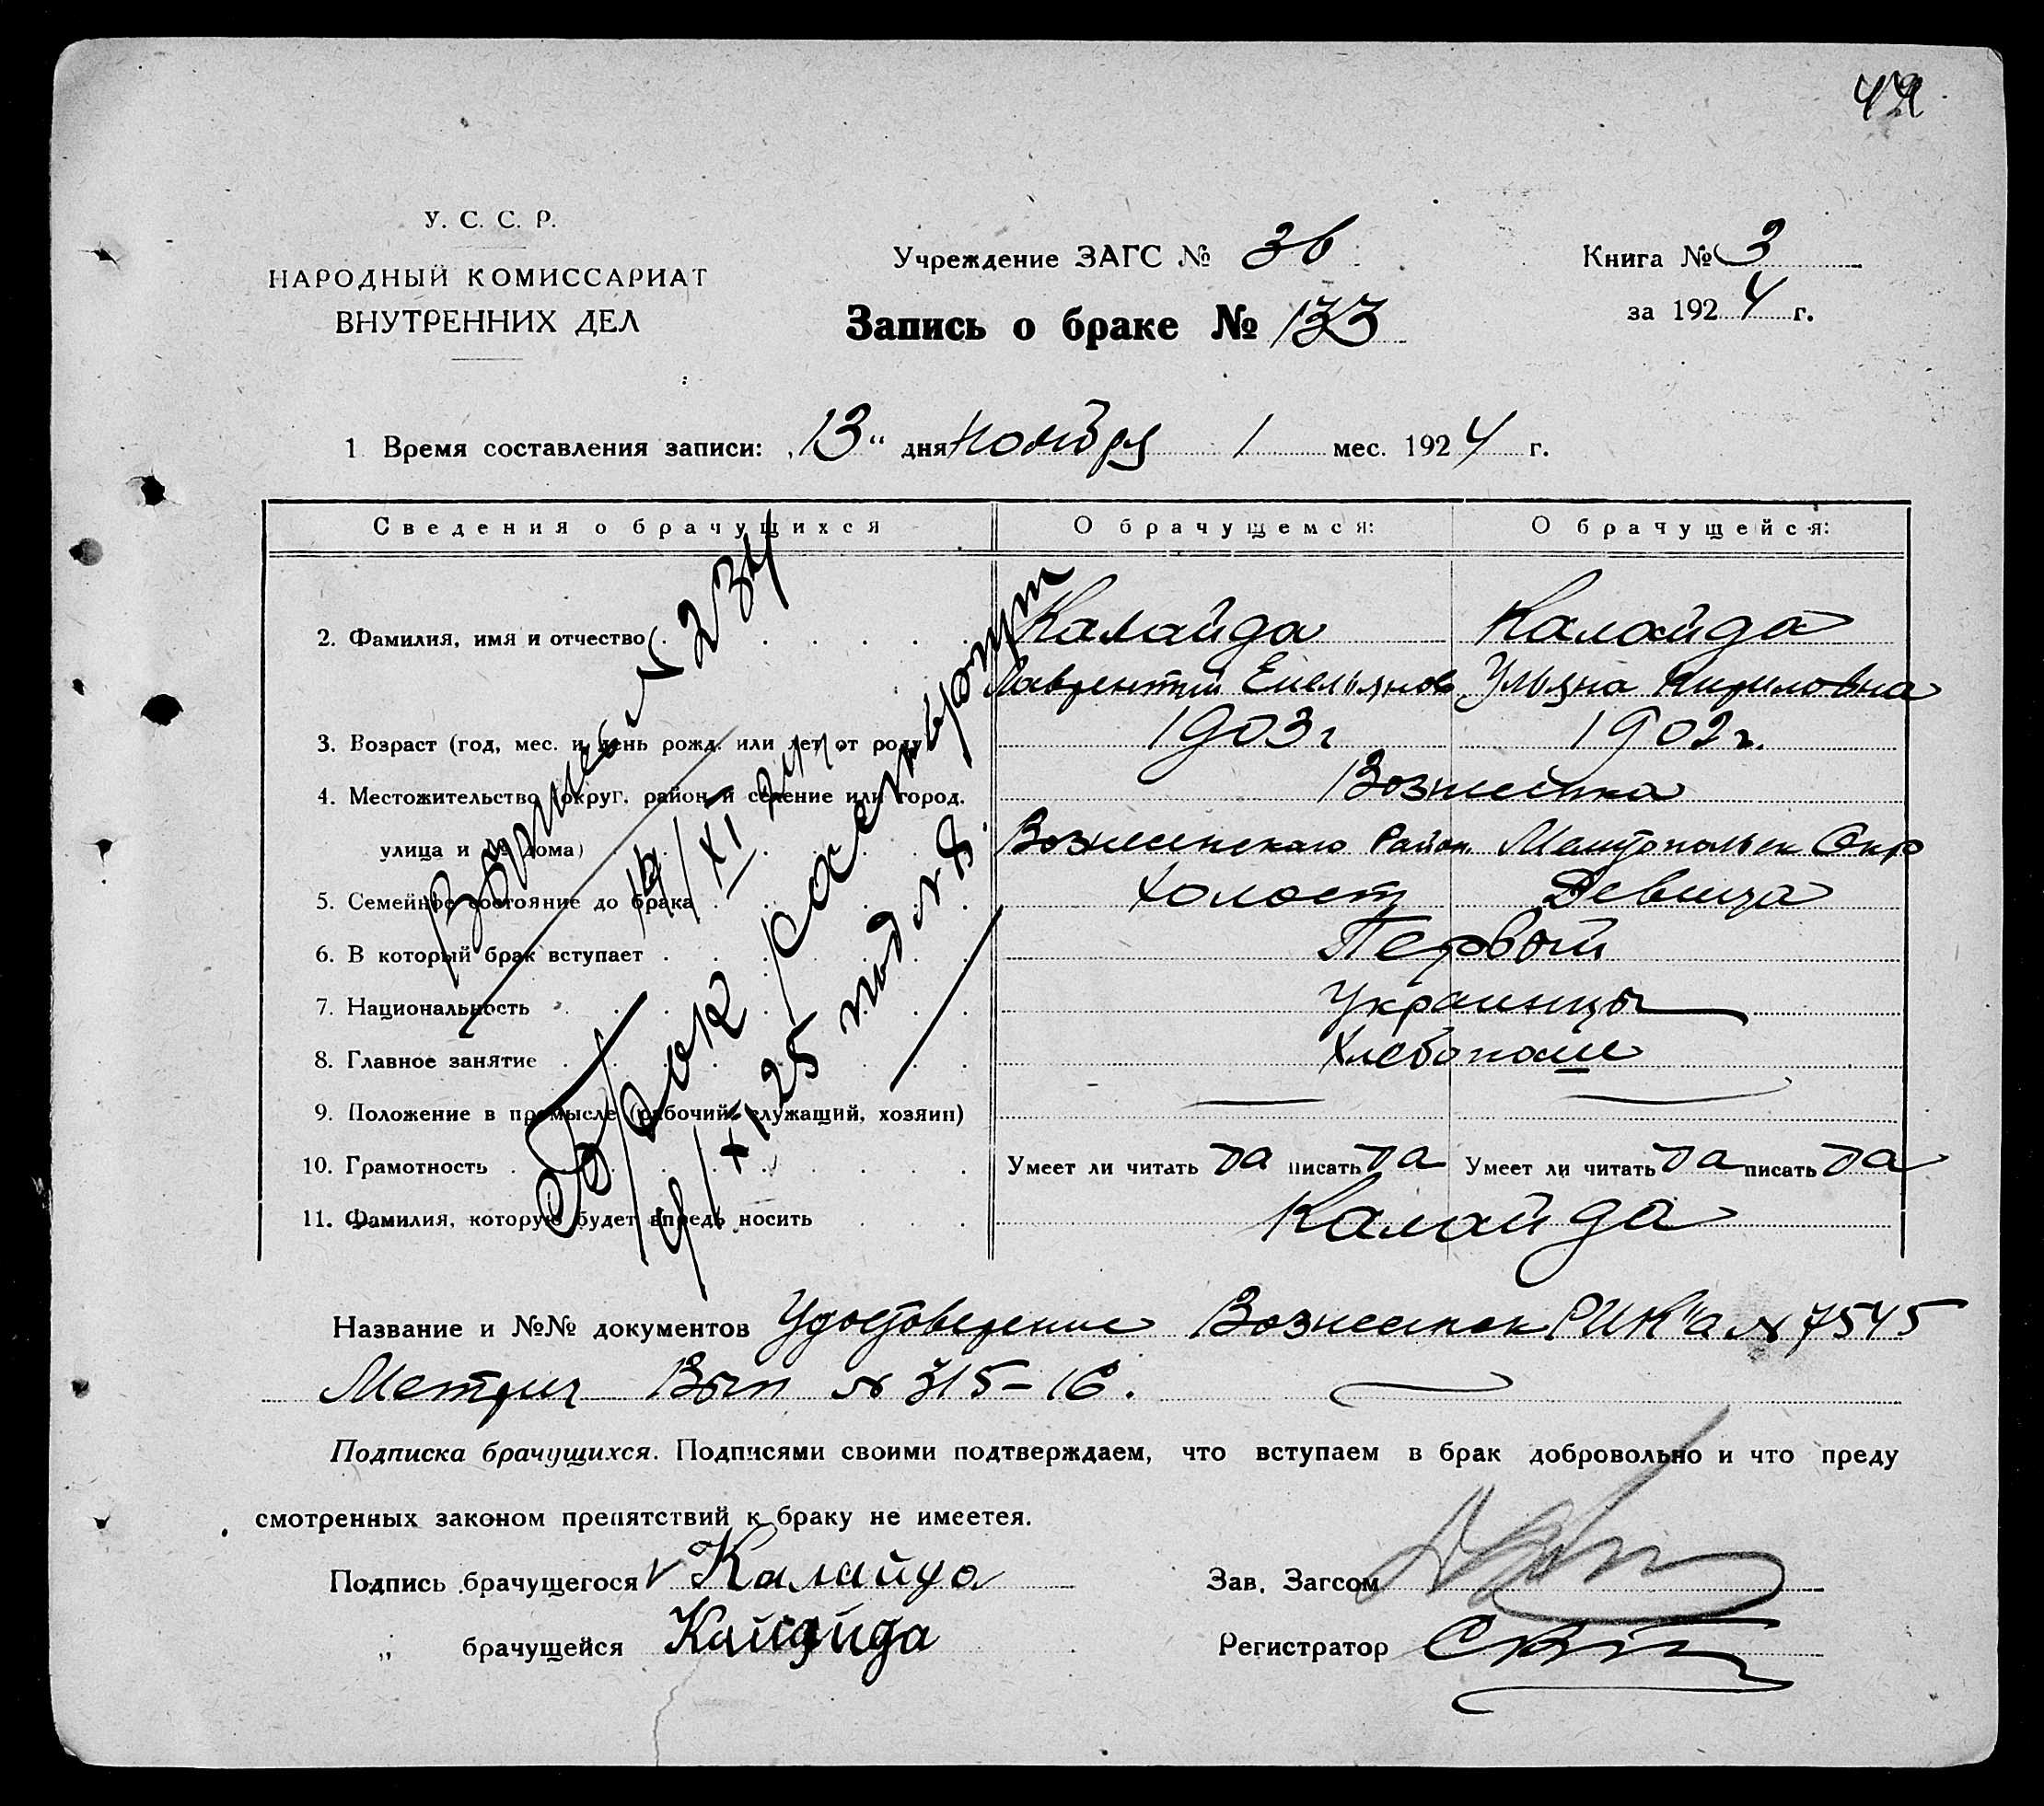 42
У. С. С. Р.
НАРОДНЫЙ КОМИССАРИАТ
ВНУТРЕННИХ ДЕЛ
Учреждение ЗАГС № 36
Запись о браке № 133
Книга № 3
за 1924 г.
1 Время составления записи: „13" дня Ноября 1 мес. 1924 г.
Сведения о брачущихся О брачущемся: О брачущейся:
2. Фамилия, имя и отчество Калайда Калайда
Лаврентий Емельянов Ульяна Кириловна
3. Возраст (год, мес. и день рожд. или лет от роду) 1903 г 1902 г.
4. Местожительство (округ, район и селение или город, Вознесенка
улица и № дома) Вознесенскаго Район. Мелитопольск Окр
5. Семейное состояние до брака Холост Девица
6. В который брак вступает Первый
7. Национальность Украинцы
8. Главное занятие Хлебопаше
9. Положение в промысле (рабочий, служащий, хозяин)
10. Грамотность Умеет ли читать да писать да Умеет ли читать да писать да
11. Фамилия, которую будет впредь носить Калайда
№ 234
14/XI 24 г.
Брак расторгнут
9/XI 25 под № 8.
Название и №№ документов Удостоверение Вознесенск РИК"а № 7545
Метрич Вып № 315-16.
Подписка брачущихся. Подписями своими подтверждаем, что вступаем в брак добровольно и что преду
смотренных законом препятствий к браку не имеется.
Подпись брачущегося Калайда Зав. Загсом
„ брачущейся Калайда Регистратор